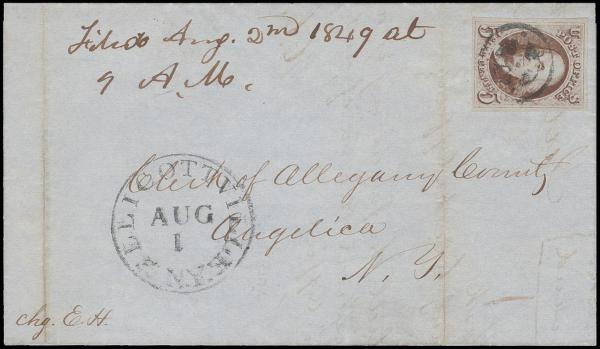 Filed Aug. 2nd 1849 at
9 A.M.
POST OFFICE
5 5
ELLICOTTVILLE N.Y.
AUG
1
Clerk of Allegany County
Angelica
N. Y.
chg. E.H.